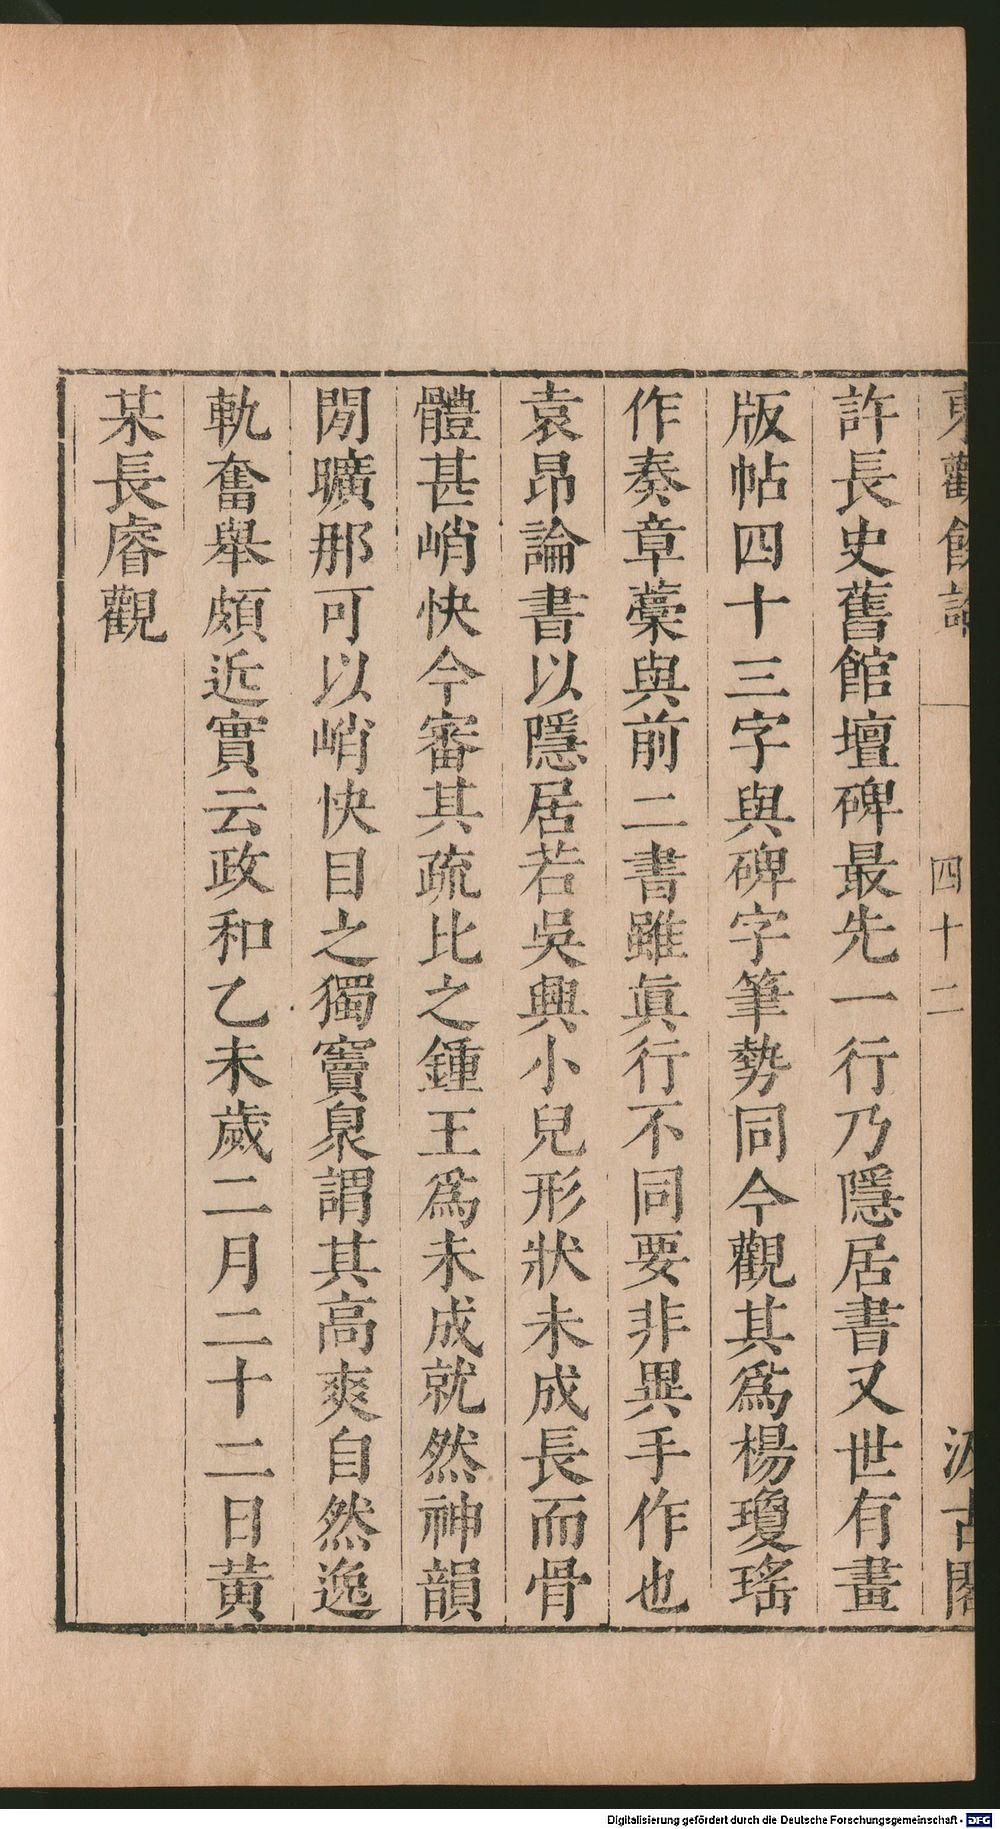 東觀餘論
四十二
汲古閣
許長史舊館壇碑最先一行乃隱居書又世有畫
版帖四十三字與碑字筆勢同今觀其爲楊瓊瑤
作奏章藳與前二書雖眞行不同要非異手作也
袁昂論書以隱居若吳興小兒形狀未成長而骨
體甚峭快今審其疏比之鍾王爲未成就然神韻
閒曠那可以峭快目之獨竇泉謂其高爽自然逸
軌奮舉頗近實云政和乙未歲二月二十二日黃
某長睿觀
Digitalisierung gefördert durch die Deutsche Forschungsgemeinschaft - DFG